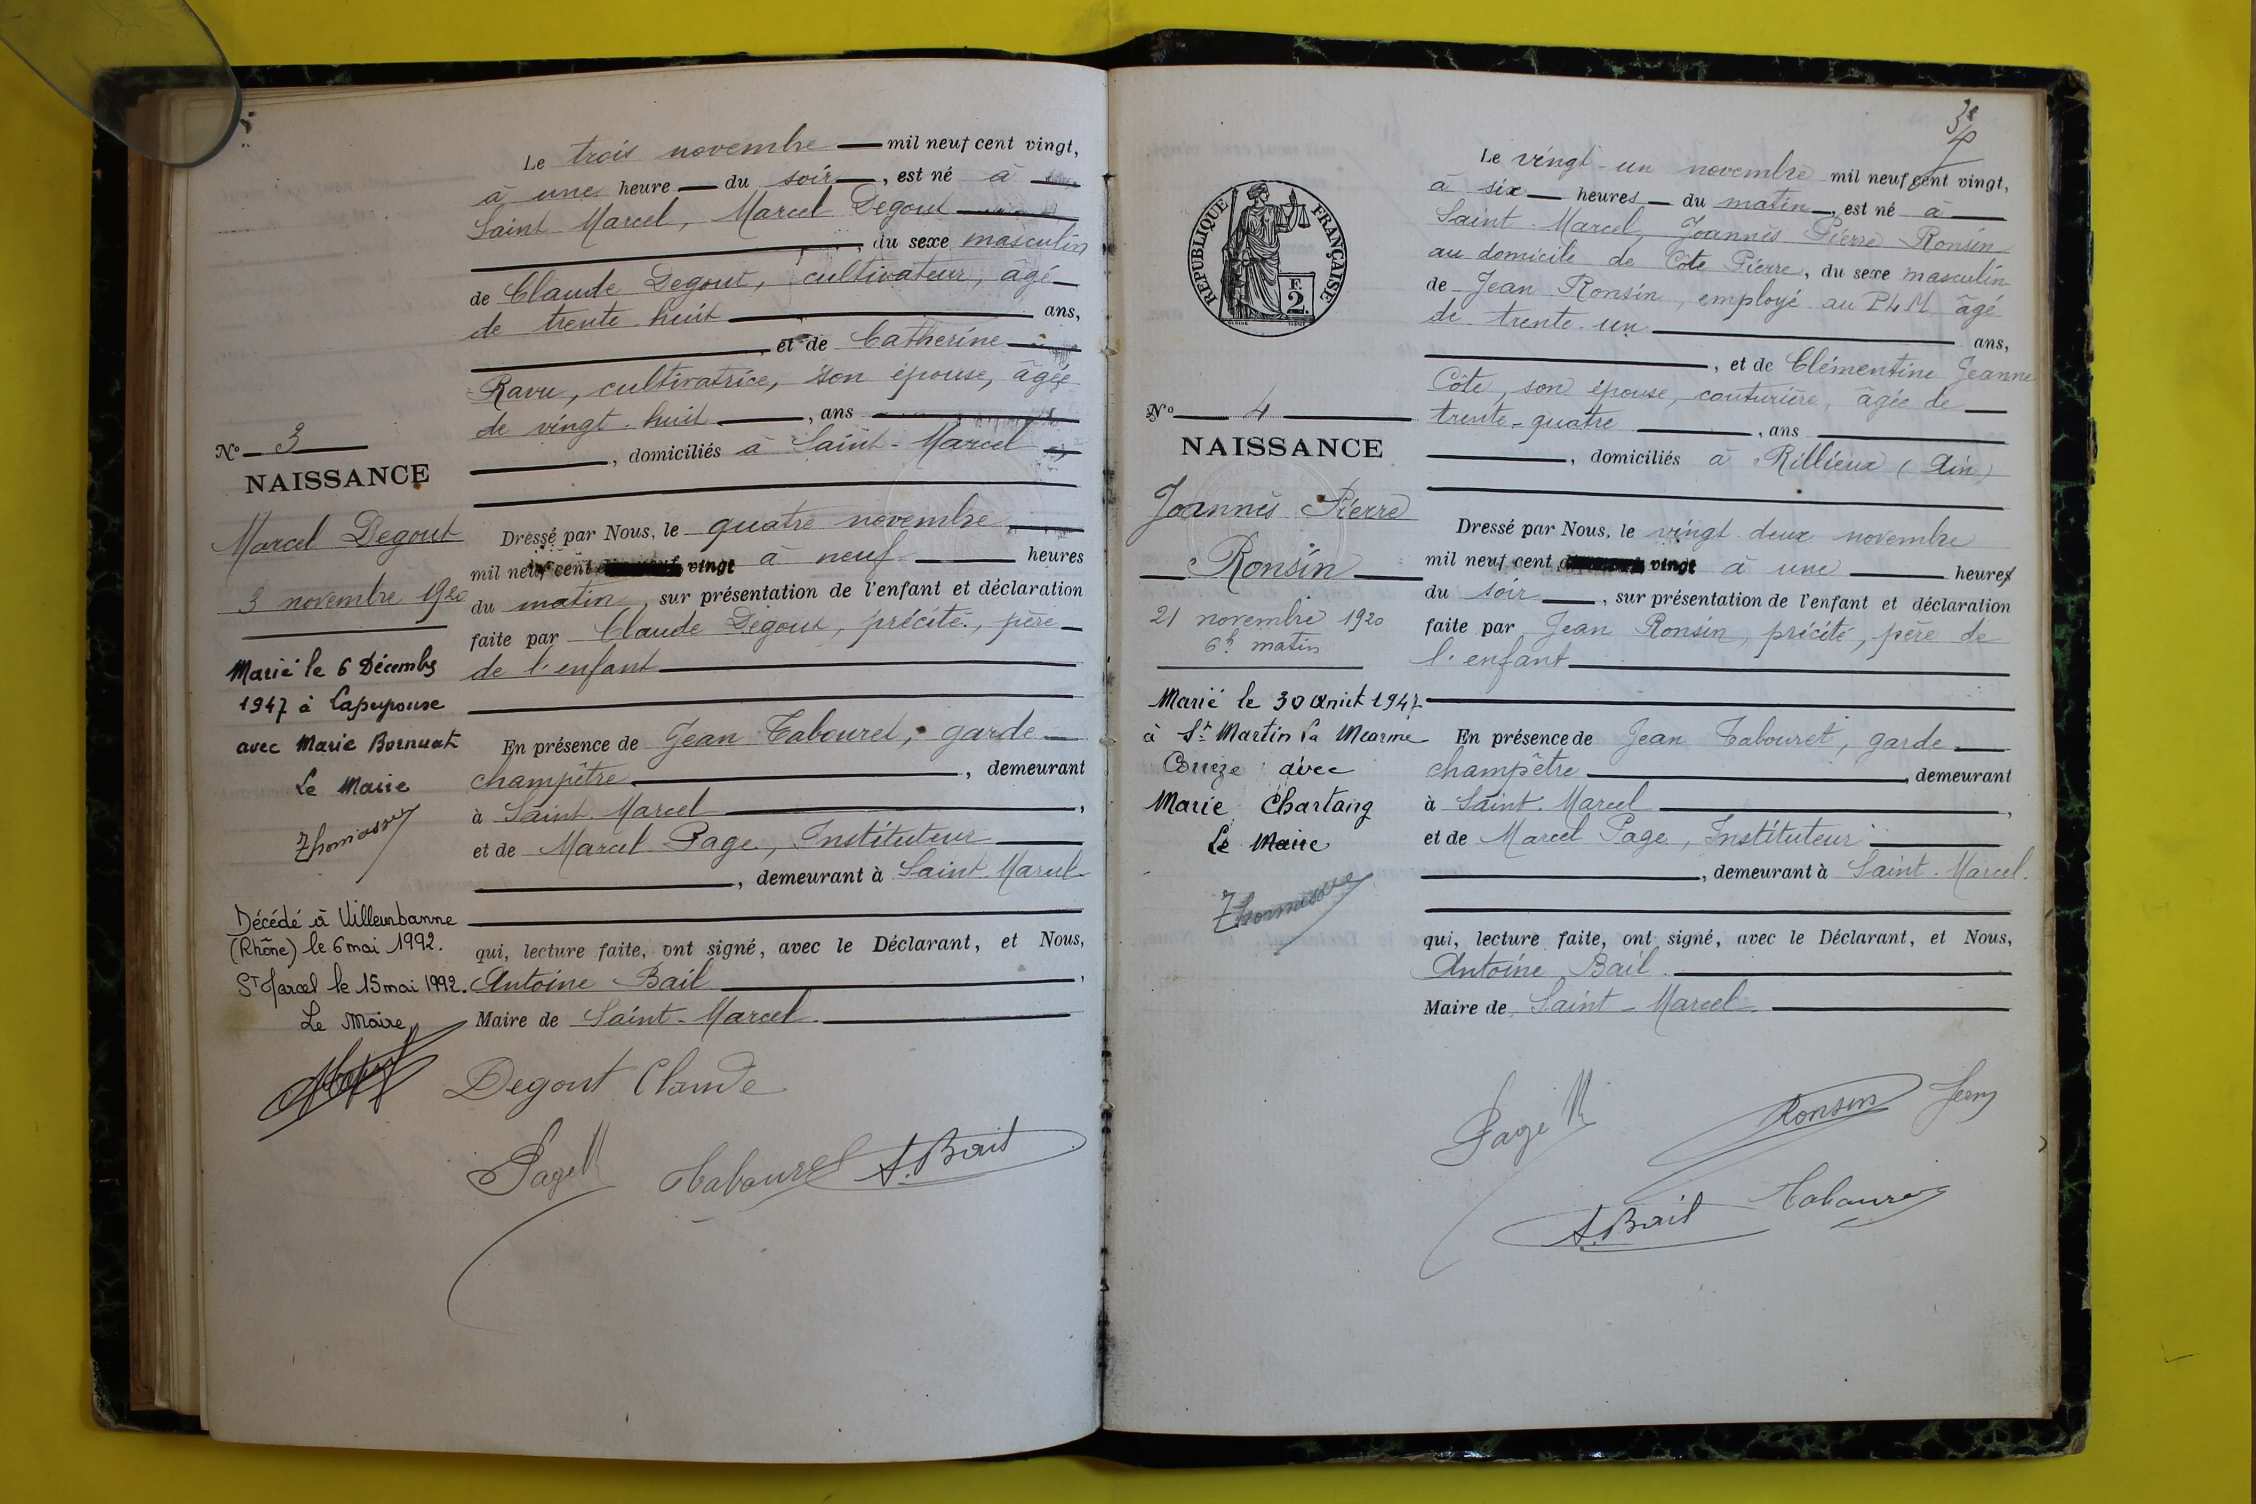 Nº 3
NAISSANCE
Marcel Degout
3 novembre 1920
Marié le 6 Décembre
1947 à Lapeyrouse
avec Marie Bornuat
Le Maire
Décédé à Villeurbanne
(Rhône) le 6 mai 1992.
St Marcel le 15 mai 1992.
Le Maire
Le trois novembre mil neuf cent vingt,
à une heure du soir, est né à
Saint-Marcel, Marcel Degout
, du sexe masculin
de Claude Degout, cultivateur, âgé
de trente huit ans,
, et de Catherine
Ravu, cultivatrice, son épouse, âgée
de vingt-huit, ans
, domiciliés à Saint-Marcel
Dressé par Nous, le quatre novembre
mil neuf cent vingt à neuf heures
du matin, sur présentation de l'enfant et déclaration
faite par Claude Degout, précité, père
de l'enfant
En présence de Jean Tabouret, garde
champêtre, demeurant
à Saint-Marcel,
et de Marcel Page, Instituteur
, demeurant à Saint-Marcel
qui, lecture faite, ont signé, avec le Déclarant, et Nous,
Antoine Bail,
Maire de Saint-Marcel
Degout Claude
Page M
Tabouret A. Bail
RÉPUBLIQUE FRANÇAISE
F.
2.
Nº 4
NAISSANCE
Joannès Pierre
Ronsin
21 novembre 1920
6h matin
Marié le 30 Aout 1947
à St Martin la
avec
Marie
Le Maire
Le vingt-un novembre mil neuf cent vingt,
à six heures du matin, est né à
Saint-Marcel, Joannès Pierre Ronsin
au domicile de Côte Pierre, du sexe masculin
de Jean Ronsin, employé au PLM âgé
de trente-un ans,
, et de Clémentine Jeanne
Côte, son épouse, couturière, âgée de
trente-quatre, ans
, domiciliés à Rillieux (Ain)
Dressé par Nous, le vingt deux novembre
mil neuf cent vingt à une heures
du soir, sur présentation de l'enfant et déclaration
faite par Jean Ronsin, précité, père de
l'enfant
En présence de Jean Tabouret, garde
champêtre, demeurant
à Saint-Marcel,
et de Marcel Page, Instituteur
, demeurant à Saint-Marcel.
qui, lecture faite, ont signé, avec le Déclarant, et Nous,
Antoine Bail
Maire de Saint-Marcel
Page M
Ronsin Jean
A. Bail Tabouret